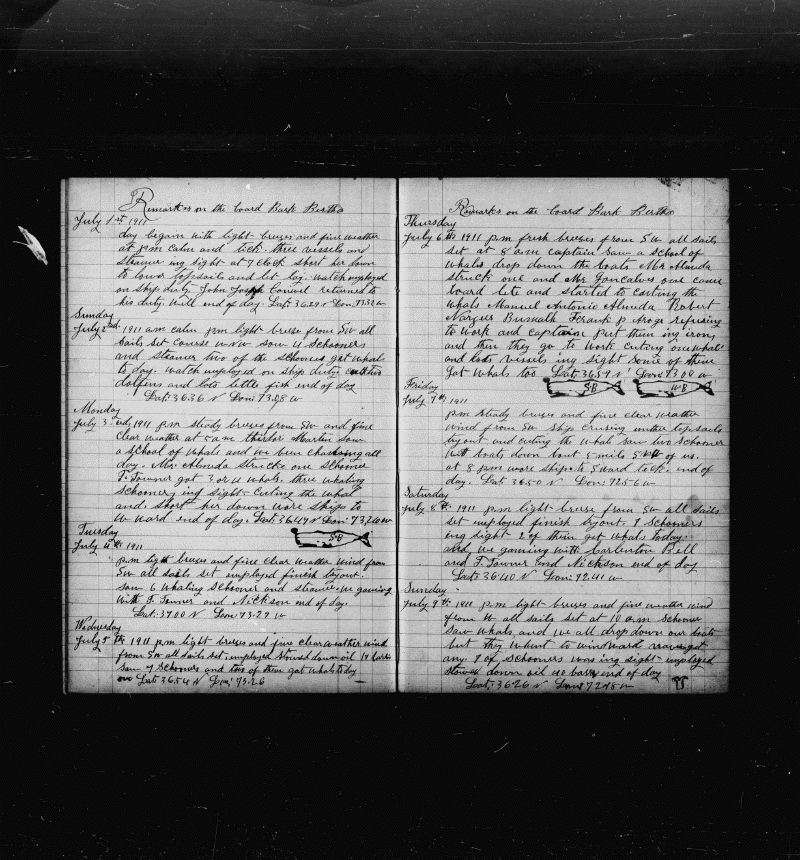 Remarks on the board Bark Bertha
July 1st 1911
day began with light breezes and fine weather
at p.m calm and tick. three vessels and
steamer ing sight at 7 clock short her down
to lower topsails and let lay. watch employed
on ship duty John Joseph returned to
his duty will end of day. Lat: 36.29 N Lon: 73.32 w
Sunday
July 2nd. 1911 a.m calm p.m light breese from SW all
sails set course w.n.w saw 4 schooners
and steamer two of the schooners get whals
to day. watch employed on ship dutie
dolfens and lots little fish end of day
Lat: 36.36 N Lon: 73.08 w
Monday
July 3.rd, 1911 p.m steady breeses from SW and fine
clear weather at 5 a.m Martin saw
a school of whals and we been chaseing all
day. Mr. Almeda strucks one schooner
F. Towner got 3 or 4 whals. three whaling
schooners ing sight. cuting the whal
and short her down wore ships to
w ward. end of day. Lat: 36.47 N Lon: 73.20 w
S.B
Tuesday
July 4th 1911
p.m light breeses and fine clear weather wind from
SW all sails set employed finish tryout.
saw 6 whaling schooner and steamer we gaming
with F. Towner and Nickson end of day.
Lat: 37.00 N Lon: 73.27 w
Wednesday
July 5 th 1911 p.m light breeses and fine clear weather wind
from SW all sails set. employed stowed down oil 14 bares
saw 7 schooners and two of them got whals today
Lat: 36.54 N Lon: 73.26
Remarks on the board Bark Bertha
Thursday
July 6th 1911 p.m fresh breeses from SW all sails
set at 8 a.m captain saw a school of
whals drop down the boats Mr Almeda
struck one and Mr Goncalves one came
board late and started to cuting the
whals Manuel Antonio Almeda Robert
Frank p. refusing
to work and captain put them ing irons
and then they go to work cuting one whal
and lots vessels ing sight some of them
got whals too Lat: 36.59 N Lon: 73.00 w
S.B
W.B
Friday
July 7th, 1911
p.m steady breeses and fine clear weather
wind from SW ship cruising under topsails
tryout and cuting the whal saw two schooner
with boats down bout 5 mils of us.
at 8 p.m wore ships to S ward tock. end of
day. Lat: 36.50 N Lon: 72.56 w
Saturday
July 8th. 1911 p.m light breese from SW all sails
set employed finish tryout. 7 schooners
ing sight 2 of them get whals today.
and we gaming with Carleton Bell
and F. Towner and Nickson end of day
Lat: 36.40 N Lon: 72.41 w
Sunday
July 9th. 1911 p.m light breeses and fine weather wind
from W all sails set at 10 a.m schooner
saw whals and we all drop down our boats
but they whent to windward
any. 7 of schooners was ing sight employed
stowed down oil 40 bars end of day
Lat: 36.26 N Lon: 72.48 w